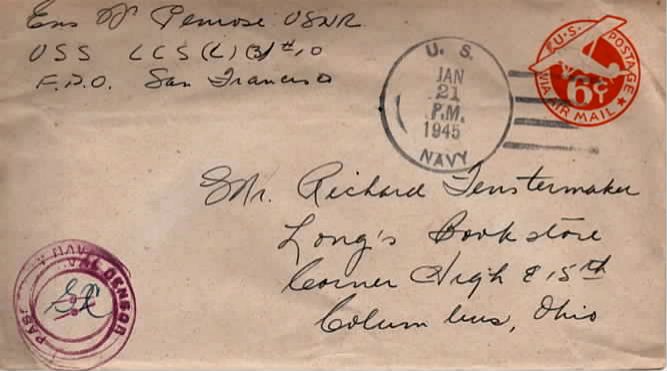 Ens W Penrose USNR
USS LCS(L)(3) #10
F.P.O. San Francisco
U.S.
JAN
21
P.M.
1945
NAVY
U.S. POSTAGE
6¢
VIA AIR MAIL
Mr. Richard Fenstermaker
Long's Book store
Corner High & 15th
Columbus, Ohio
PASSED BY NAVAL CENSOR